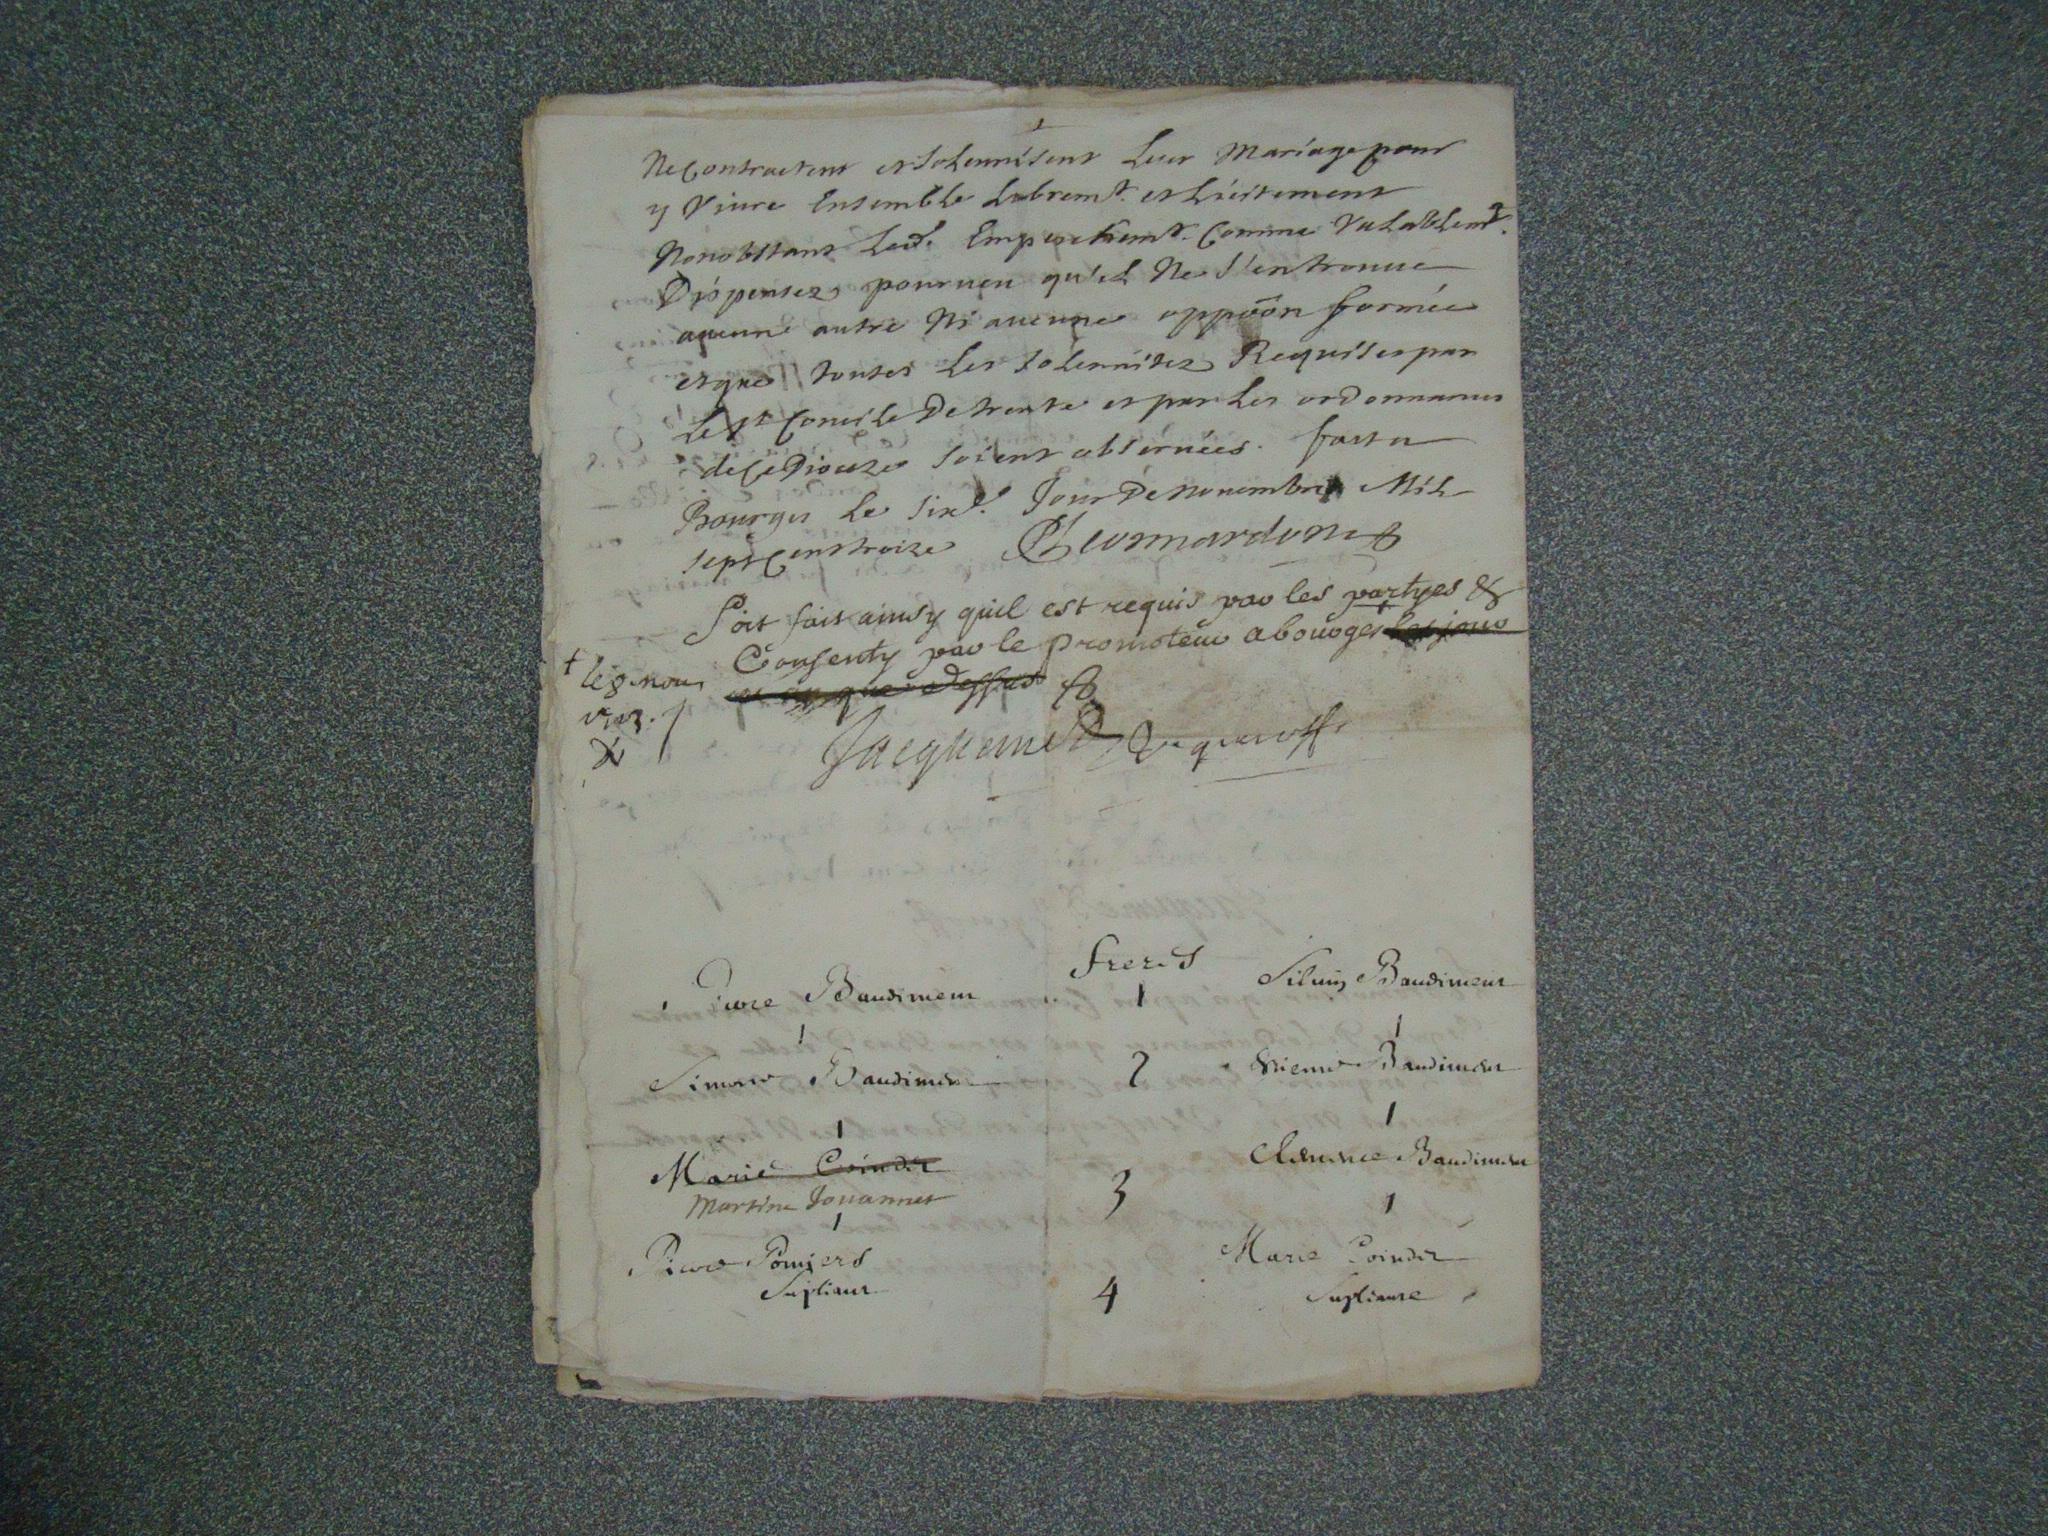 Ne Contractent et solennisent Leur Mariage pour
y Viure Ensemble Libremt. et Licitement
Nonobstant Led. Empeschemt. Comme Valablemt.
Dispensez pourueu qu'il Ne s'en trouue
aucune autre Ni aucune oppoôn formée
et que toutes Les solennitez Requises par
Le st Concile De trente et par Les ordonnances
de Ce Dioceze soient obseruées. fait a
Bourges Le sixe. Jour De nouembre Mil
sept Cent treize
Soit fait ainsy quil est requis par les partyes &
Consenty par le promoteur a bourges les jour
et an que dessus
+ le 8 nou
1713.
Jacquemet
freres
Pierre Baudimeur
1
Siluin Baudimeur
Simone Baudimeur
2
Etienne Baudimeur
Marie Coindet
Martine Jouannet
3
Clemence Baudimeur
Pierre Pomiers
Supliant
4
Marie Coindet
Supliante